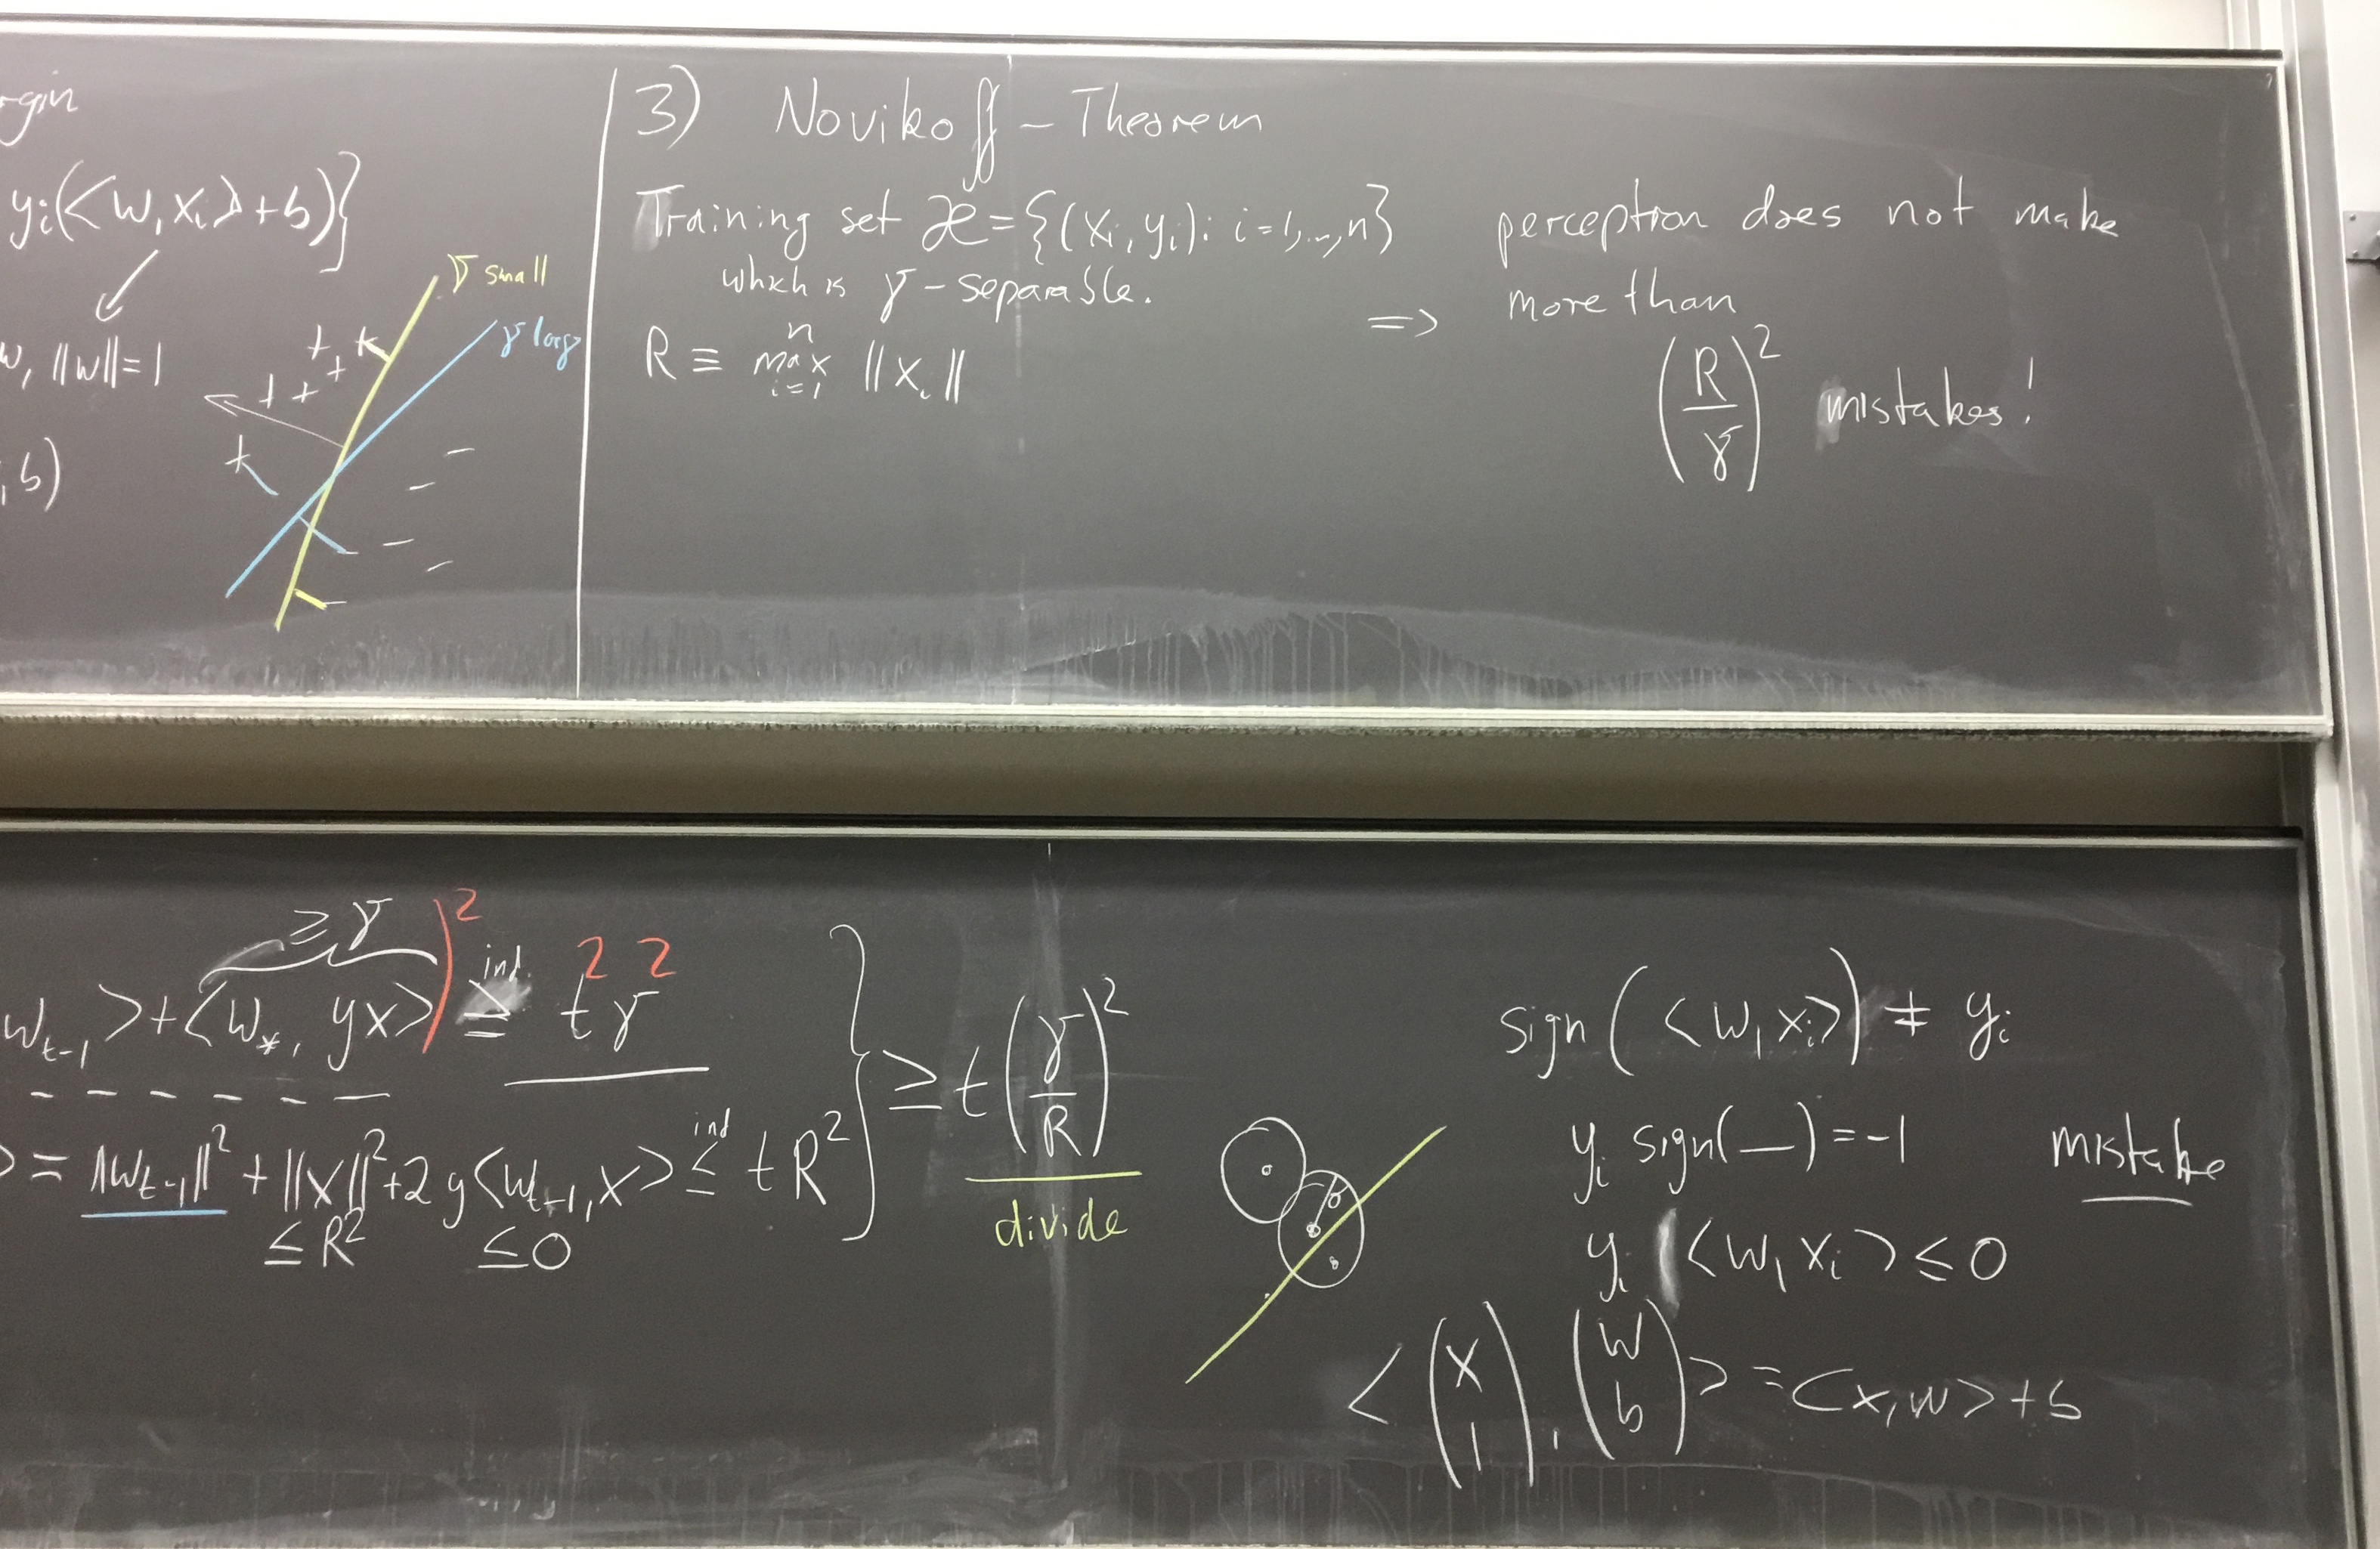 rgin
yi(<w, xi> + b)}
w, ||w|| = 1
, b)
γ small
γ large
3) Novikoff - Theorem
Training set 𝒳 = {(xi, yi): i = 1, ..., n}
which is γ - separable.
R ≡ max_{i=1}^{n} ||xi||
=> perception does not make
more than
(R/γ)² mistakes!
≥ γ
w_{t-1} > + <w_*, yx>)² ≥ (ind.) t² γ²
> = ||w_{t-1}||² + ||x||² + 2y<w_{t-1}, x> ≤ (ind) tR²
≤ R² ≤ 0
} ≥ t (γ/R)²
divide
sign(<w, xi>) ≠ yi
yi sign(—) = -1 mistake
yi <w, xi> ≤ 0
<(x 1), (w b)> = <x, w> + b